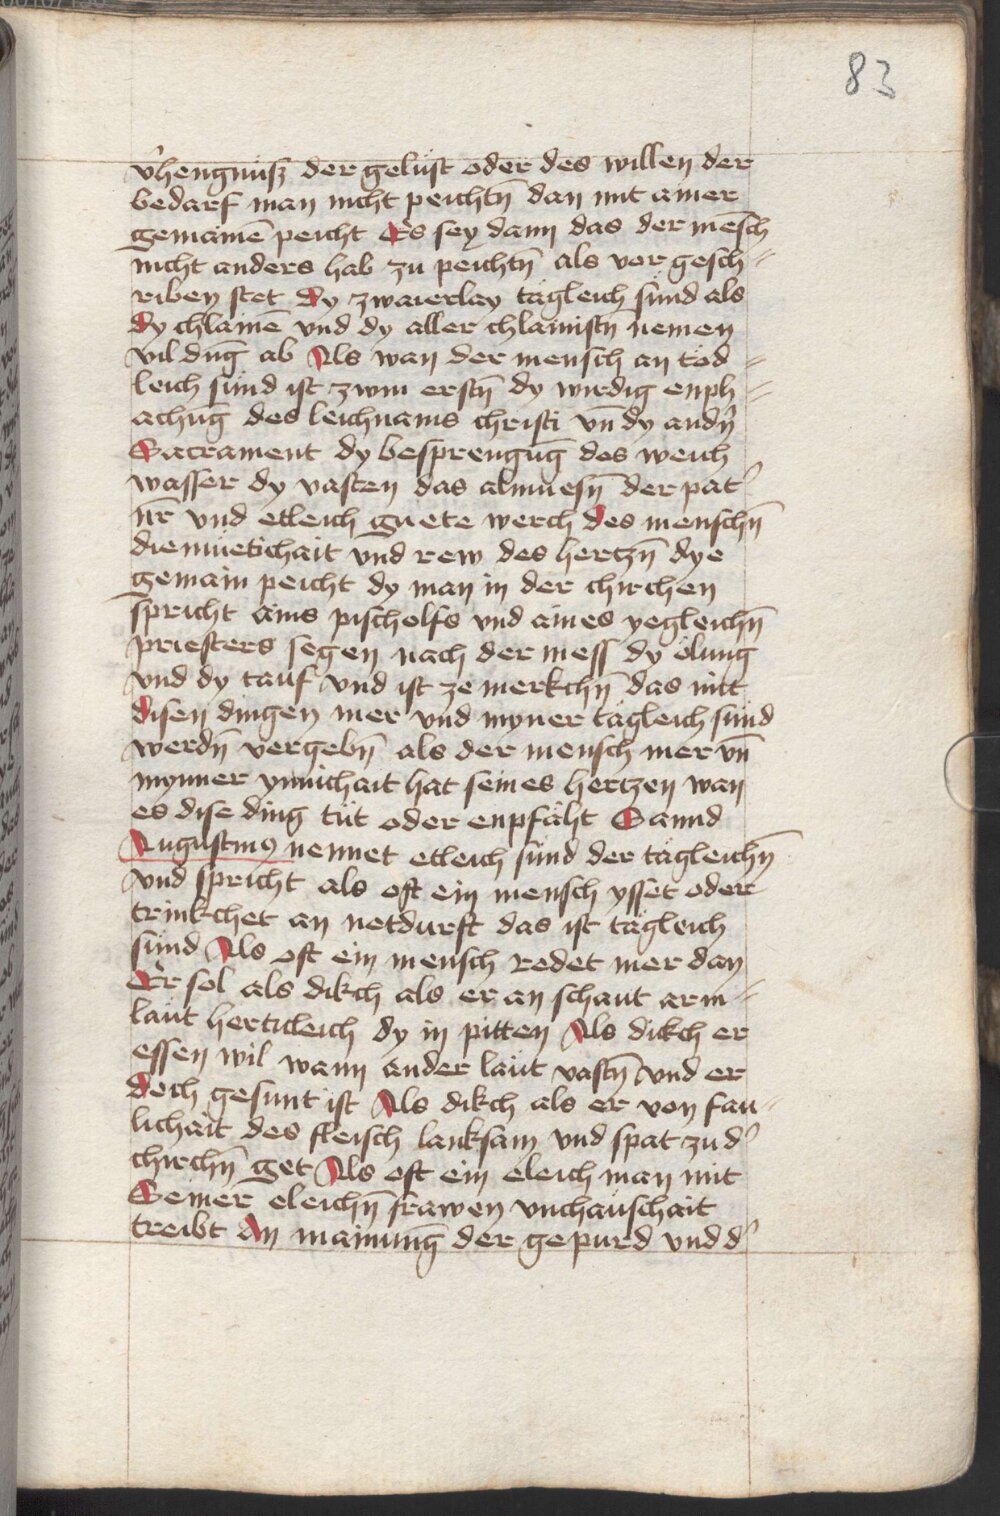 83
v̾hengnuisz der gelust oder des willen der
bedarf man nicht peichtn̄ dan mit ainer
gemainē peicht Es sey dann das der mēsch
nicht anders hab zu peichtn̄ als vor gesch⸗
riben stet dy zwaierlay tägleich sünd als
dy chlainē vnd dy aller chlainistn̄ nemen
vil dīng ab Als wan der mensch an töd⸗
leich sünd ist zwm erstn̄ dy wirdig enph⸗
achūg des leichnams christi vn̄ dy andn̄
Sacrament dy besprengūg des weich
wasser dy vasten das almuesn̄ der pat̾
nr̄ vnd etleich guete werch des menschn̄
diemüetichait vnd rew des hertzn̄ dye
gemain peicht dy man in der chirchen
spricht ains pischolfs vnd aines yegleichn̄
priesters segen nach der mess dy ölung
vnd dy tauf vnd ist ze merkchn̄ das mit
disen dingen mer vnd myner tägleich sünd
werdn̄ vergebn̄ als der mensch mer vn̄
mynner ynnichait hat seines hertzen wan
es dise ding tüt oder enpfächt Sannd
Augustinꝰ nennet etleich sünd der tägleichn̄
vnd spricht als oft ein mensch ysset oder
trinkchet an notdurft das ist tägleich
sünd Als oft ein mensch redet mer dan
Er sol als dikch als er an schaut arm⸗
läut herticleich dy in pitten Als dikch er
essen wil wann ander läut vastn̄ vnd er
doch gesunt ist Als dikch als er von fau⸗
lichait des fleisch lanksam vnd spat zu d̾
chirchn̄ get Als oft ein eleich man mit
Seiner eleichn̄ frawen vnchäuschait
treibt An mainung der gepurd vnd d̾